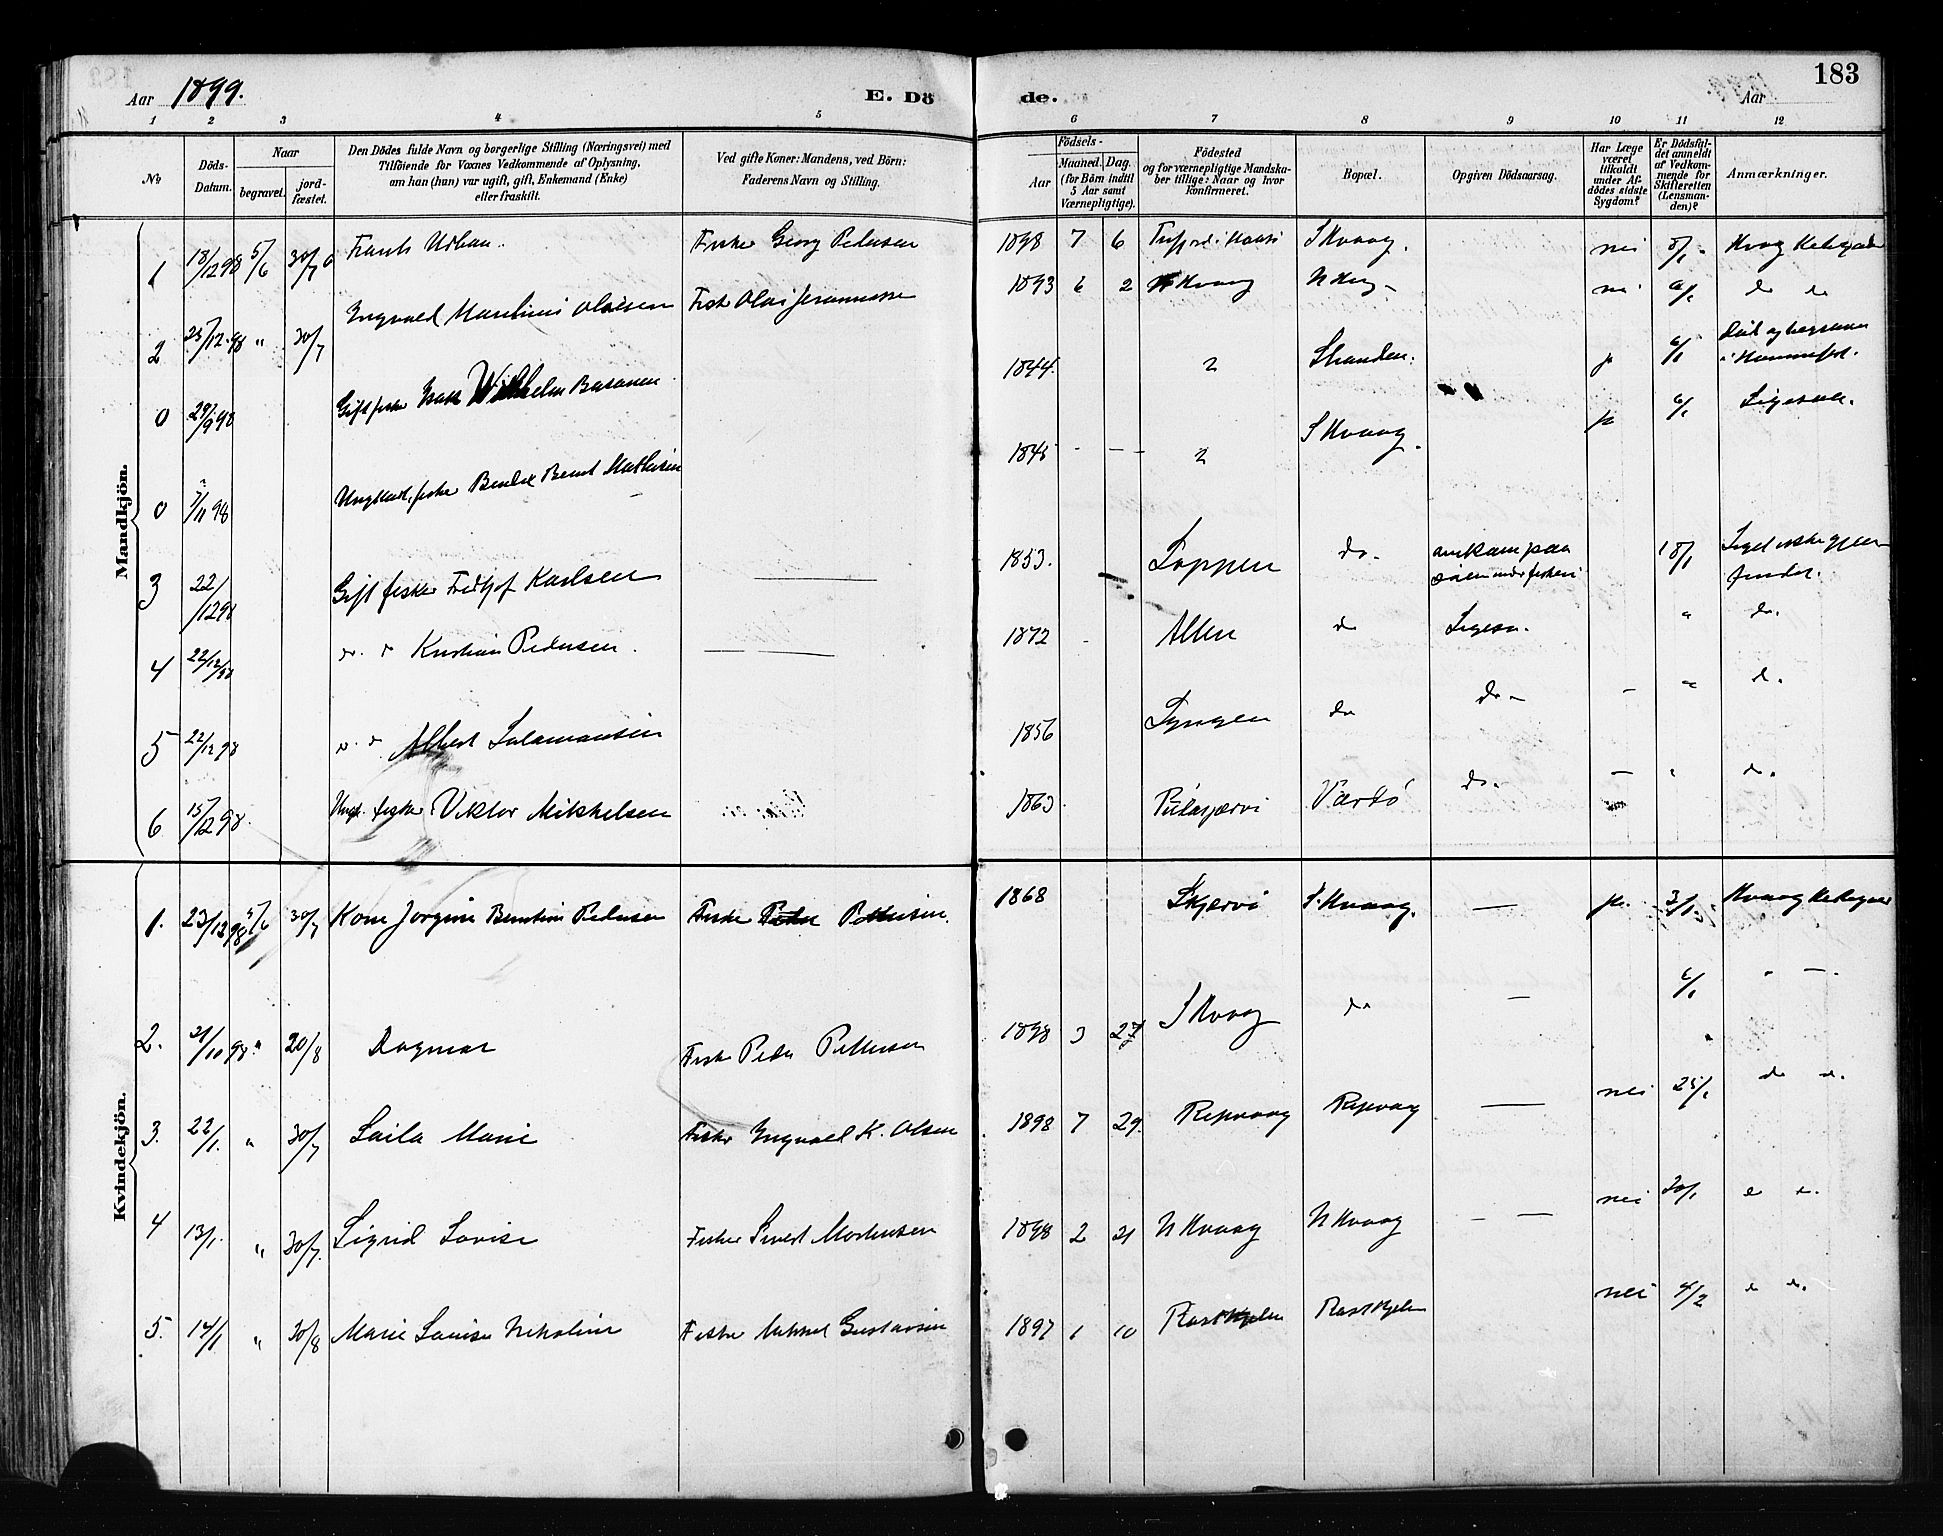 183
Aar 1899.
E. Dö
de.
Aar
1 2 3 4 5 6 7 8 9 10 11 12
№
Döds-Datum.
Naar
begravet.
jord-fæstet.
Den Dödes fulde Navn og borgerlige Stilling (Næringsvei) med
Tilföiende for Voxnes Vedkommende af Oplysning,
om han (hun) var ugift, gift, Enkemand (Enke)
eller fraskilt.
Ved gifte Koner: Mandens, ved Börn:
Faderens Navn og Stilling.
Födsels-
Aar
Maaned. Dag.
(for Börn indtil
5 Aar samt
Værnepligtige).
Födested
og for værnepligtige Mandska-
ber tillige: Naar og hvor
konfirmeret.
Bopæl.
Opgiven Dödsaarsag.
Har Læge
været
tilkaldt
under Af-
dödes sidste
Sygdom?
Er Dödsfal-
det anmeldt
af Vedkom-
mende for
Skifteretten
(Lensman-
den)?
Anmærkninger.
Mandkjön.
1 18/12 98 5/6 30/7 Frants Urban. Fisker Georg Pedersen 1898 7 6 S Kvaag. nei 8/1
2 25/12 98 " 30/7 Ingvald Marelius Olaisen Fisk Olai 1893 6 2 N Kvaag nei 6/1 do do
0 29/9 98 Gift fisker Isak Wilhelm Basanen 1844. Stranden. 6/1 i Hammerfest.
0 7/11 98 Ungkarl, fisker Bernt Mathisen 1845 - - - S Kvaag. 6/1 Ligesaa.
3 22/12 98 Gift fisker Fridtjof Karlsen 1853. Loppen do. omkom paa söen under fiskeri 18/1 Liget ikke gjenfundet.
4 22/12 98 do. do Kristian Pedersen. 1872 - Alten do Ligesaa. " do.
5 22/12 98 do. do Albert Salamonsen 1856 Lyngen do do - - " do.
6 15/12 98. Ungk. fisker Viktor Mikkelsen 1863. Vardö do. - " do.
Kvindekjön.
1. 23/12 98 5/6 30/7 Kone Jorgine Berntine Pedersen Fisker Peder Pettersen. 1868 Skjærvö S. Kvaag. — 3/1
2. 21/10 98. " 20/8 Dagmar Fisker Peder Pettersen 1898 3 27 S Kvaag do — 6/1 " —.
3. 22/1. " 30/7 Laila Marie Fisker Ingvald K. Olsen 1898 7 29. Repvaag Repvaag — nei 25/1 do do.
4 13/1. " 30/7. Sigrid Lovise Fisker Sivert Mortensen 1898 2 21 N Kvaag N Kvaag - — nei 30/1 do do.
5. 14/1 " 30/8 Marie Lovise Nikoline Fisker Mikkel Gustavsen 1897 1 10 nei 4/2 do do.